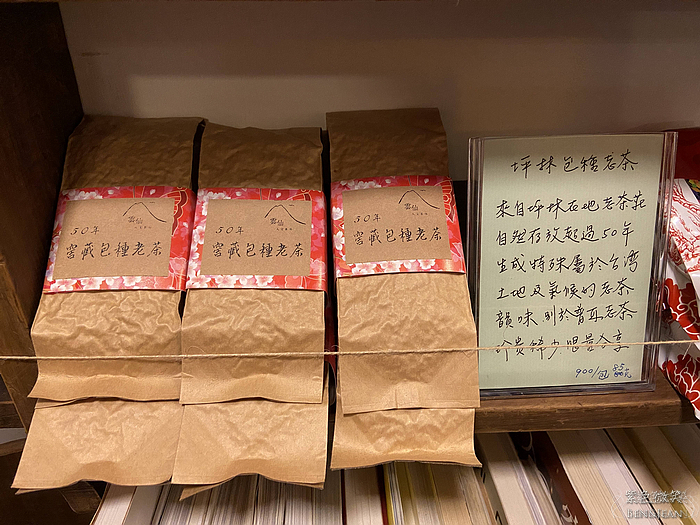 雲仙
50年
窖藏包種老茶
雲仙
50年
窖藏包種老茶
雲仙
50年
窖藏包種老茶
坪林包種老茶
來自坪林在地老茶莊
自然存放超過50年
生成特殊屬於台灣
土地及氣候的老茶
韻味 別於普洱老茶
珍貴 限量分享
900/包
紫色微笑
BENSLEAN